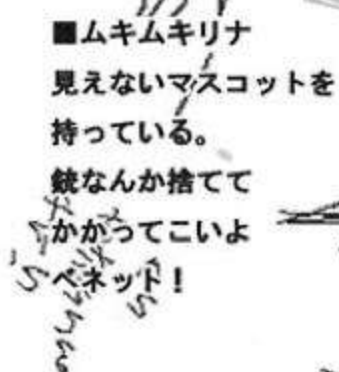 ■ムキムキリナ
見えないマスコットを
持っている。
銃なんか捨てて
かかってこいよ
ベネット！